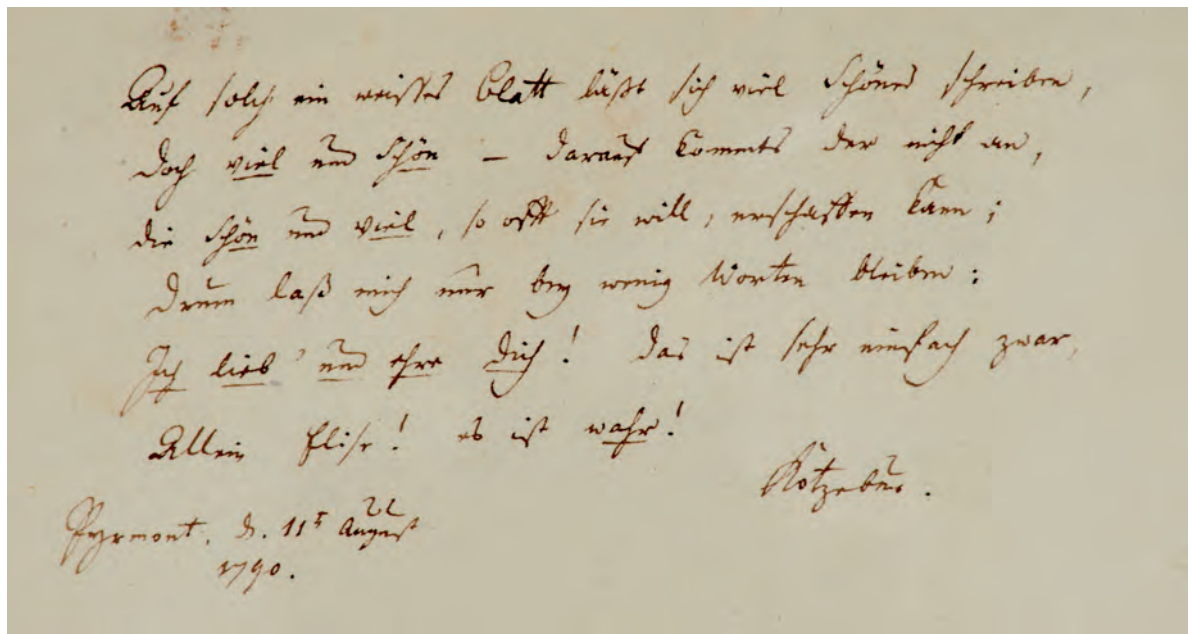 Auf solch ein weisses Blatt läßt sich viel Schönes schreiben,
Doch viel und schön – darauf kommts der nicht an,
die schön und viel, so offt sie will, erschaffen kann;
Drum laß mich nur bey wenig Worten bleiben:
Ich lieb' und ehre Dich! Das ist sehr einfach zwar,
Allein Elise! es ist wahr!
Kotzebue.
Pyrmont, d. 11t August
1790.